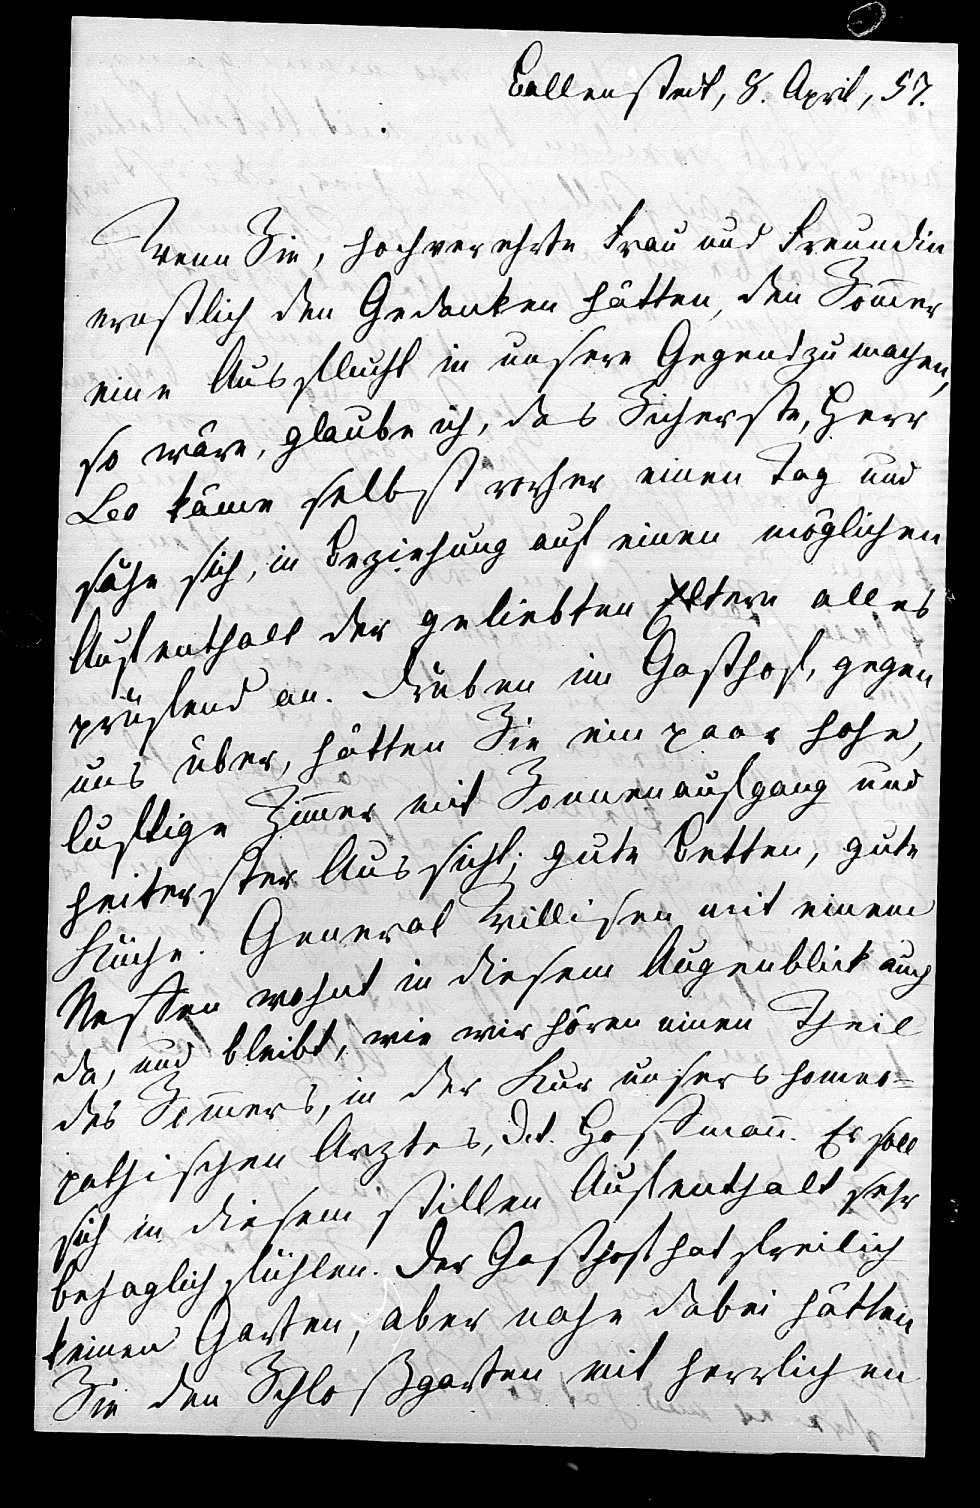 Ballenstedt, 8. April, 57.
Wenn Sie, hochverehrte Frau und Freundin
ernstlich den Gedanken hätten, den Sommer
eine Ausflucht in unsere Gegend zu machen,
so wäre, glaube ich, das Sicherste, Herr
Leo käme selbst vorher einen Tag und
sähe sich, in Beziehung auf einen möglichen
Aufenthalt der geliebten Eltern alles
prüfend an. Drüben im Gasthof, gegen
uns über, hätten Sie ein paar hohe,
luftige Zimmer mit Sonnenaufgang und
heiterster Aussicht; gute Betten, gute
Küche. General Willisen mit einem
Neffen wohnt in diesem Augenblick auch
da, und bleibt, wie wir hören einen Theil
des Sommers, in der Kur unsers homeo=
pathischen Arztes, Dct. Hoffmann. Er soll
sich in diesem stillen Aufenthalt sehr
behaglich fühlen. Der Gasthof hat freilich
keinen Garten, aber nahe dabei hätten
Sie den Schloßgarten mit herrlichen